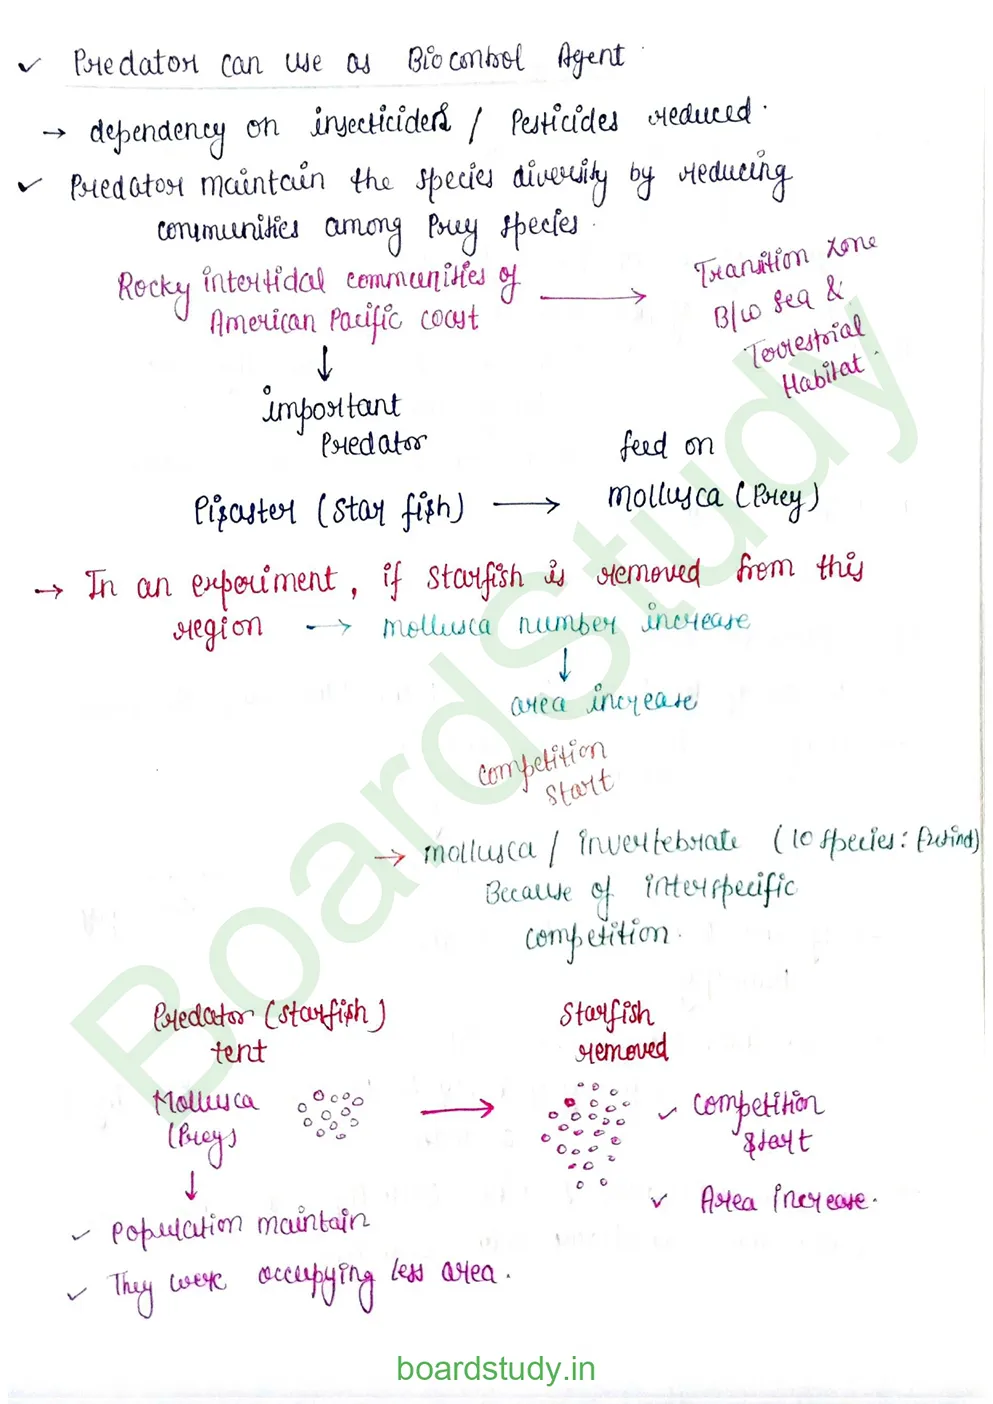 ✓ Predator can use as Biocontrol Agent
→ dependency on insecticides / Pesticides reduced.
✓ Predator maintain the species diversity by reducing
communities among Prey species.
Rocky intertidal communities of
American Pacific coast
→ Transition zone
B/w sea &
Terrestrial
Habitat.
↓
important
Predator
feed on
Pisaster (Star fish) → mollusca (Prey)
→ In an experiment, if starfish is removed from this
region → mollusca number increase
↓
area increase
competition
start
→ mollusca / invertebrate (10 species:
Because of interspecific
competition.
Predator (starfish)
tent
Starfish
removed
Mollusca
(Prey)
→
✓ competition
start
↓
✓ Area increase.
✓ Population maintain
✓ They were occupying less area.
BoardStudy
boardstudy.in